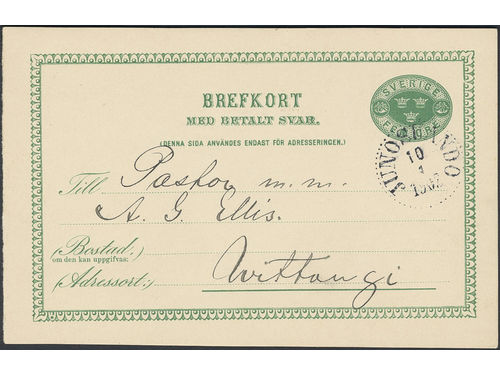 SVERIGE
FEM ÖRE
BREFKORT
MED BETALT SVAR.
(DENNA SIDA ANVÄNDES ENDAST FÖR ADRESSERINGEN.)
JUNOSUANDO
10
1
Till Pastor m.m.
A. G. Ellis.
(Bostad:)
om den kan uppgifvas:
Wittangi
(Adressort:)